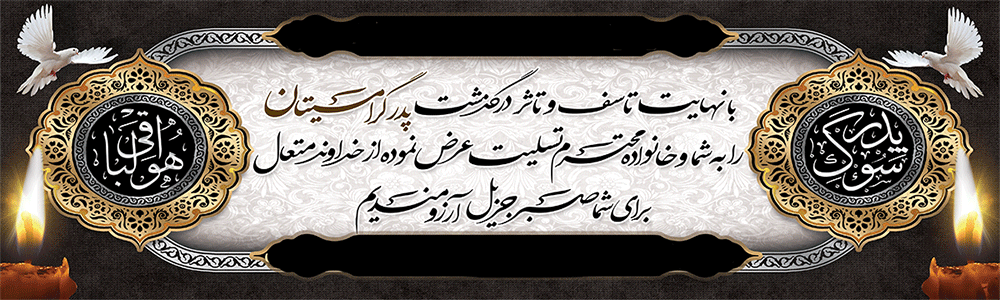 سوگ پدر
با نهایت تاسف و تاثر درگذشت پدر گرامیتان
را به شما و خانواده محترم تسلیت عرض نموده از خداوند متعال
برای شما صبر جزیل آرزومندیم
هوالباقی